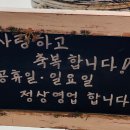 사랑하고
축복합니다!
공휴일·일요일
정상영업 합니다